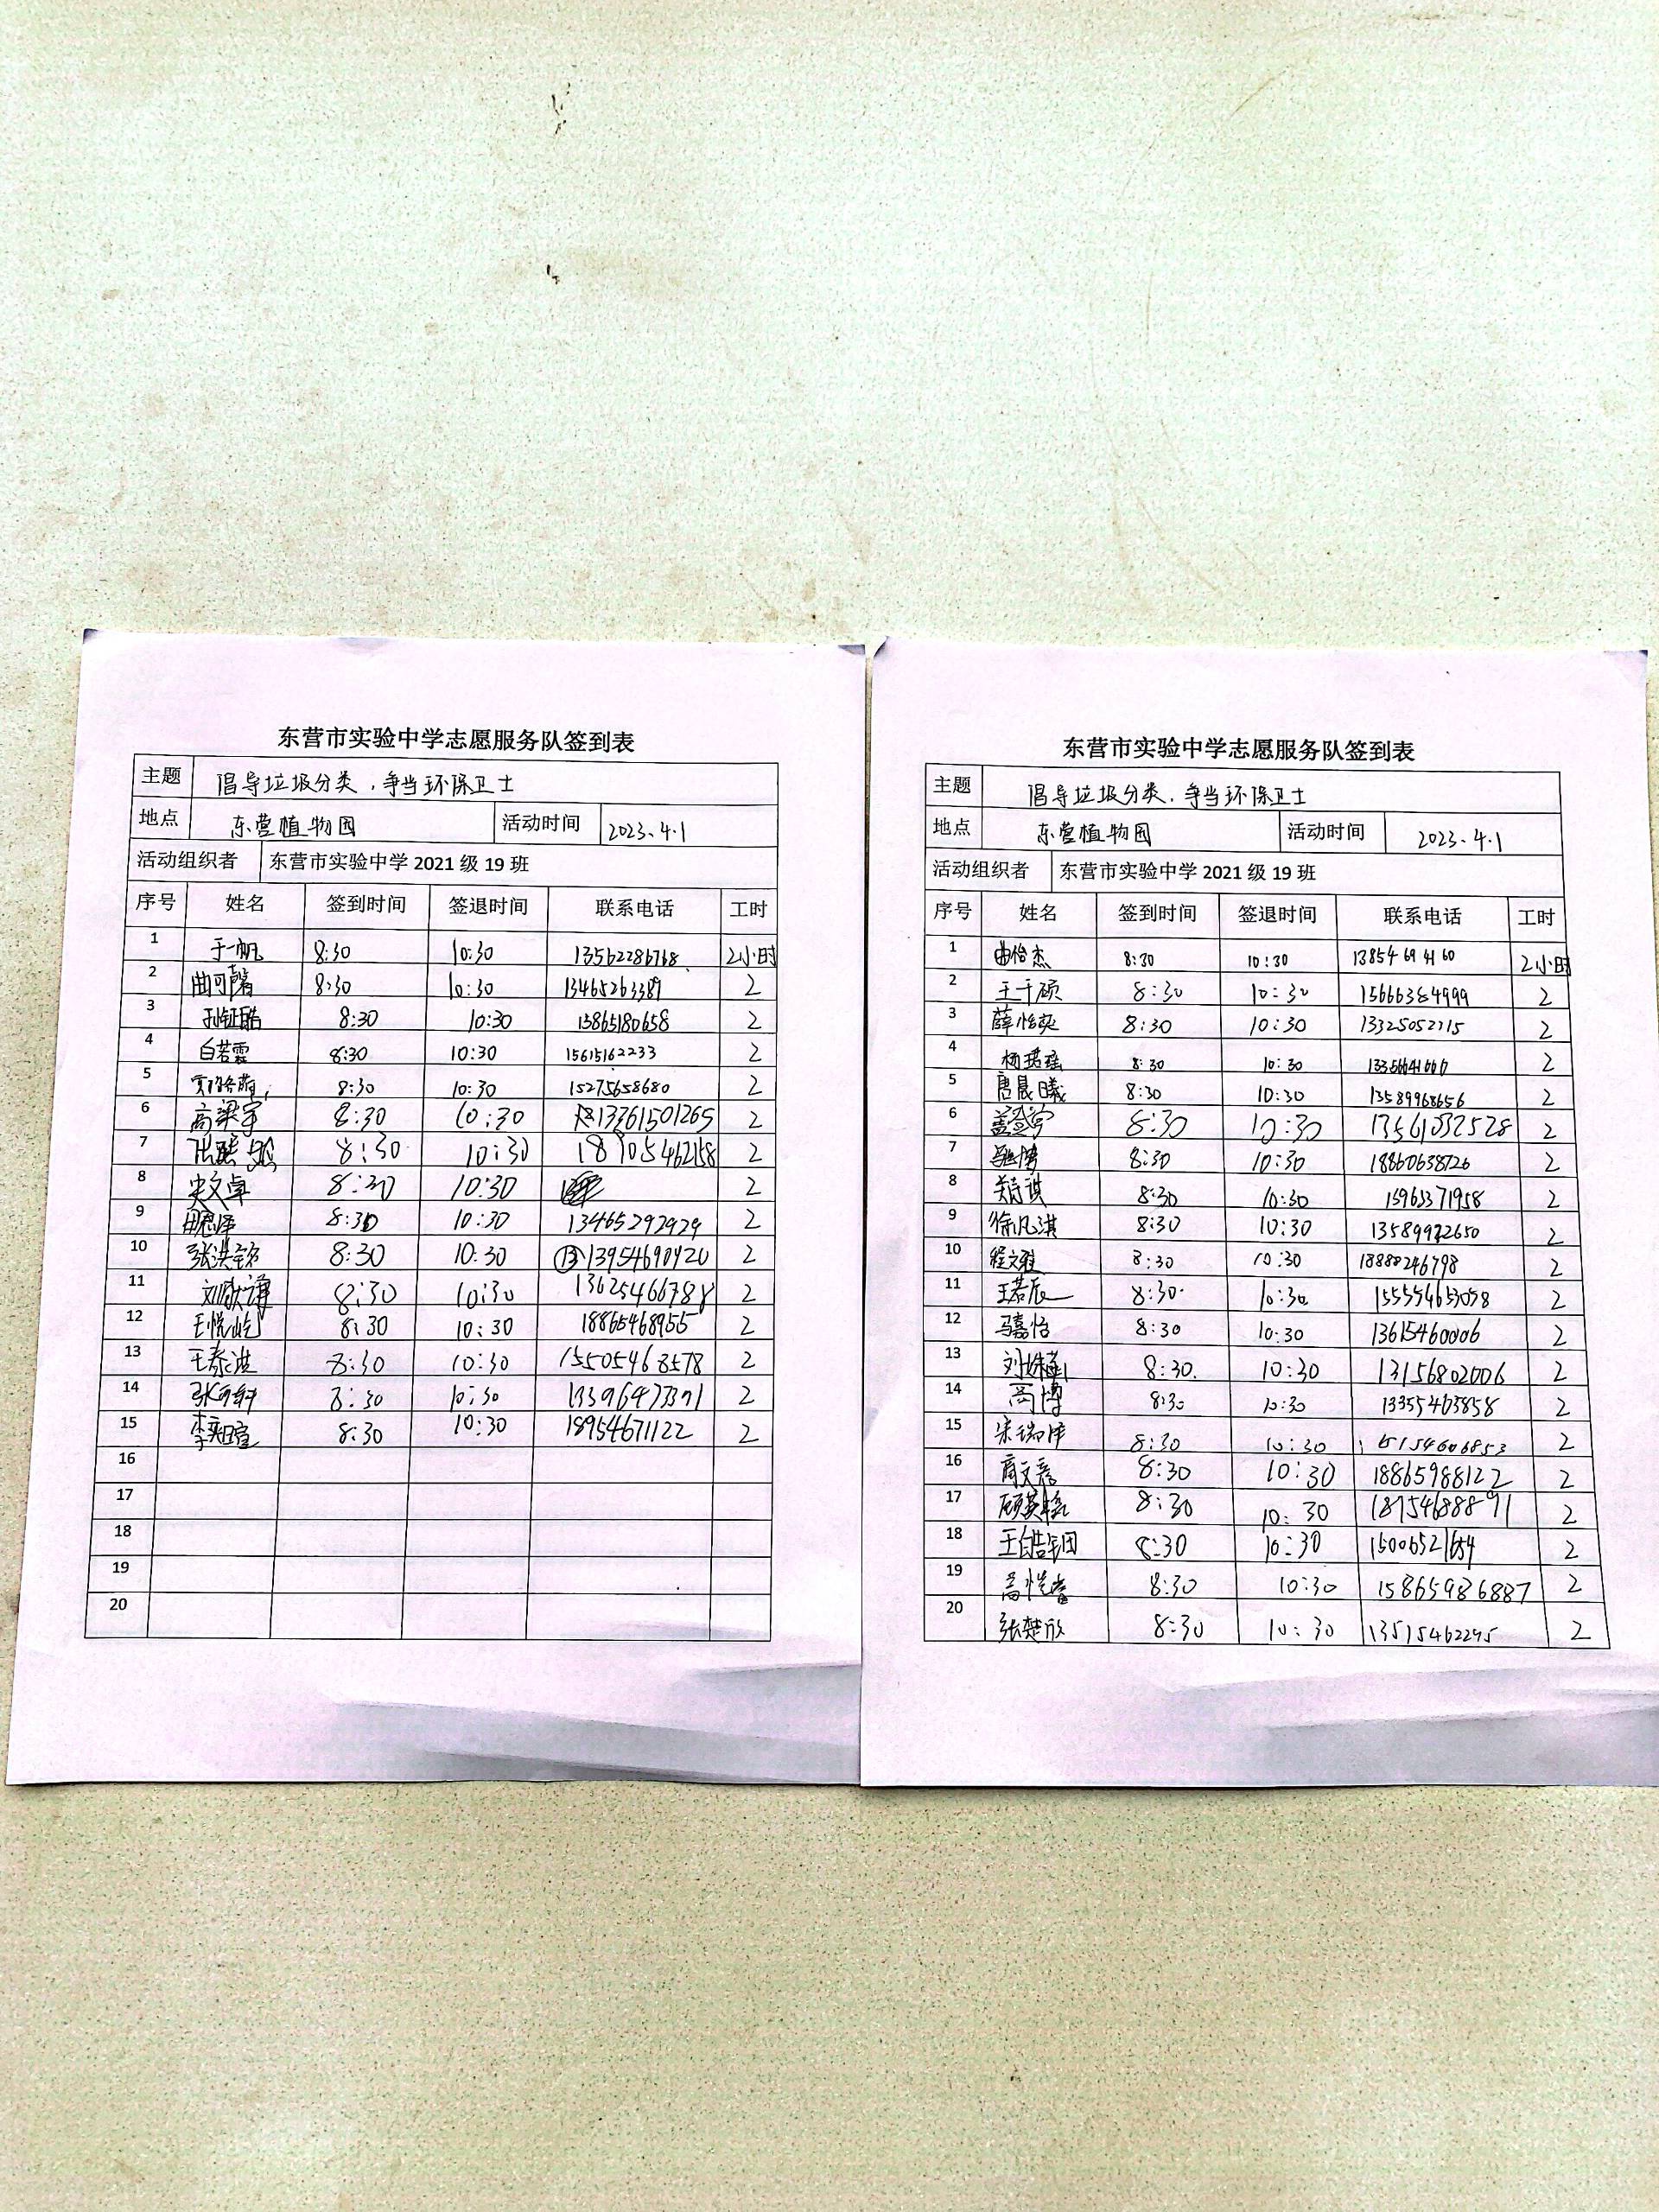 东营市实验中学志愿服务队签到表
主题 倡导垃圾分类,争当环保卫士
地点 东营植物园 活动时间 2023.4.1
活动组织者 东营市实验中学 2021 级 19 班
序号 姓名 签到时间 签退时间 联系电话 工时
1 于一帆 8:30 10:30 13562286768 2小时
2 曲可馨 8:30 10:30 13465263389 2
3 8:30 10:30 13865180658 2
4 白若雲 8:30 10:30 15615162233 2
5 8:30 10:30 15275658680 2
6 高梁宇 8:30 10:30 13361501265 2
7 8:30 10:30 18905462158 2
8 史文卓 8:30 10:30 2
9 8:30 10:30 13465292929 2
10 张洪铭 8:30 10:30 13954690920 2
11 刘 谦 8:30 10:30 13625466788 2
12 王悦屹 8:30 10:30 18865468955 2
13 王泰洪 8:30 10:30 15505468578 2
14 8:30 10:30 13396473391 2
15 李奕瑄 8:30 10:30 18954671122 2
16
17
18
19
20
东营市实验中学志愿服务队签到表
主题 倡导垃圾分类,争当环保卫士
地点 东营植物园 活动时间 2023.4.1
活动组织者 东营市实验中学 2021 级 19 班
序号 姓名 签到时间 签退时间 联系电话 工时
1 曲怡杰 8:30 10:30 13854694160 2小时
2 王千硕 8:30 10:30 15666384999 2
3 薛怡爽 8:30 10:30 13325052715 2
4 杨珺瑶 8:30 10:30 2
5 唐晨曦 8:30 10:30 13589968656 2
6 盖登宇 8:30 10:30 13561032528 2
7 8:30 10:30 18860638726 2
8 8:30 10:30 15963371958 2
9 徐凡淇 8:30 10:30 13589992650 2
10 程文雅 8:30 10:30 18888246798 2
11 王若辰 8:30 10:30 15555465058 2
12 马嘉怡 8:30 10:30 13615460006 2
13 刘姝 8:30 10:30 13156802006 2
14 商博 8:30 10:30 13355463858 2
15 宋瑞泽 8:30 10:30 15154606853 2
16 商文 8:30 10:30 18865988122 2
17 顾英 8:30 10:30 18754688891 2
18 王皓 8:30 10:30 15006521654 2
19 高悦睿 8:30 10:30 15865986887 2
20 张楚欣 8:30 10:30 13515462295 2